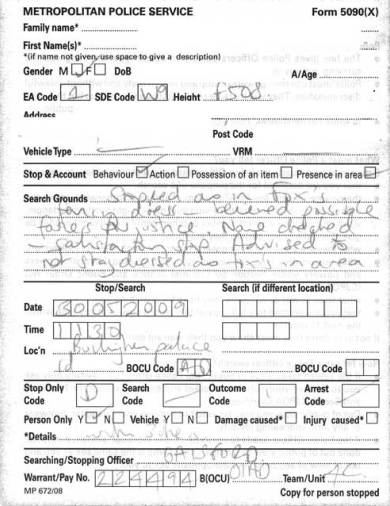 METROPOLITAN POLICE SERVICE Form 5090(X)
Family name*
First Name(s)*
*(if name not given, use space to give a description)
Gender M F DoB
A/Age
EA Code 1 SDE Code W9 Height F508
Address
Post Code
Vehicle Type VRM
Stop & Account Behaviour Action Possession of an item Presence in area
Search Grounds Stopped as in
dress – believed possible
fathers for justice. Name checked
– satisfactory stop. Advised to
not stay dressed as in area
Stop/Search Search (if different location)
Date 30052009
Time 1130
Loc'n Buckingham palace
rd BOCU Code AD BOCU Code
Stop Only Code D Search Code Outcome Code Arrest Code
Person Only Y N Vehicle Y N Damage caused* Injury caused*
*Details
Searching/Stopping Officer
Warrant/Pay No. 224494 B(OCU) Team/Unit
MP 672/08 Copy for person stopped